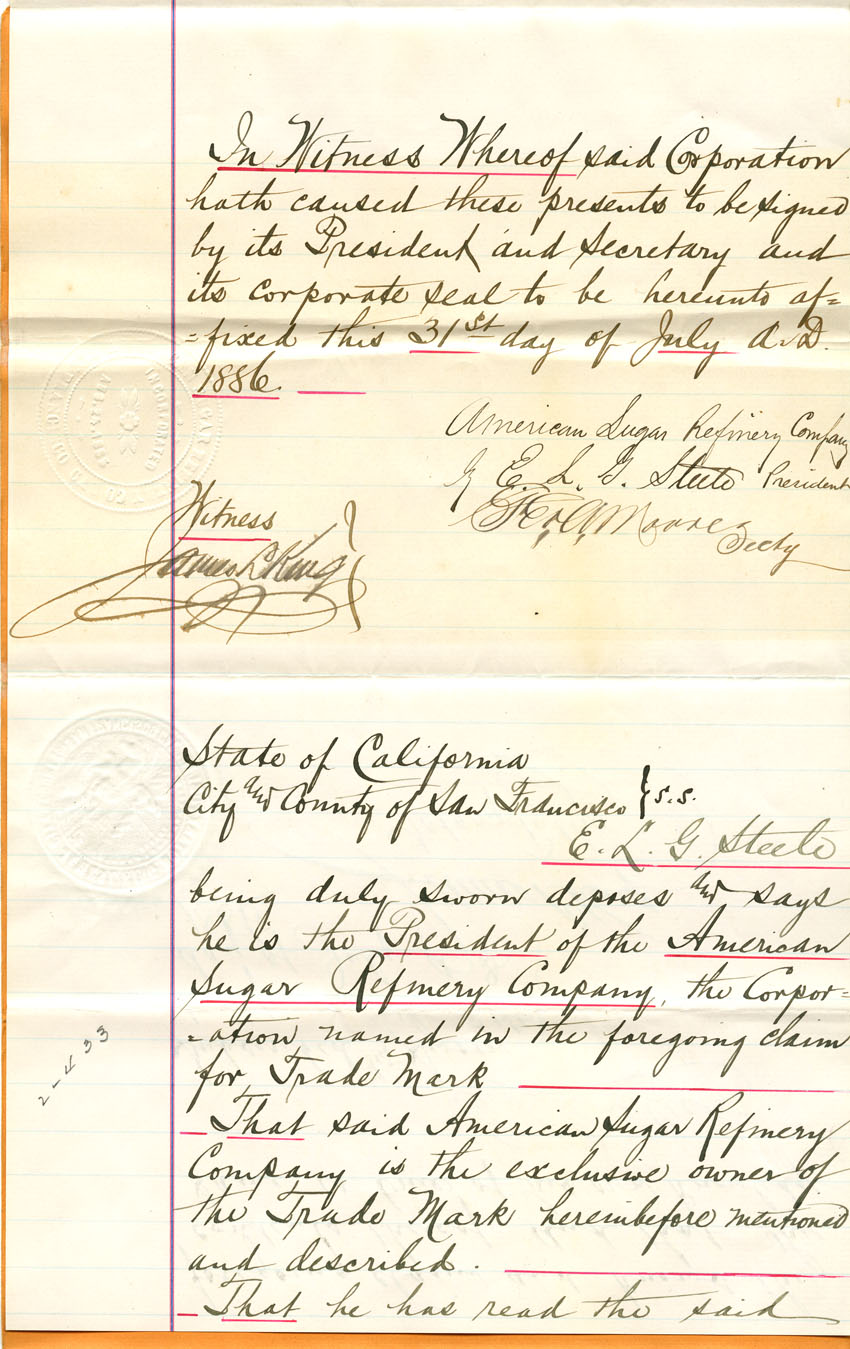 In Witness Whereof said Corporation
hath caused these presents to be signed
by its President and Secretary and
its corporate seal to be hereunto af=
=fixed this 31st day of July A.D.
1886.
American Sugar Refinery Company
by E. L. G. Steele President
Geo. A. Moore Secty
Witness
James L. King
State of California
City and County of San Francisco } S.S.
E. L. G. Steele
being duly sworn deposes and says
he is the President of the American
Sugar Refinery Company, the Corpor=
=ation named in the foregoing claim
for Trade Mark
That said American Sugar Refinery
Company is the exclusive owner of
the Trade Mark hereinbefore mentioned
and described.
That he has read the said
2-433
INCORPORATED